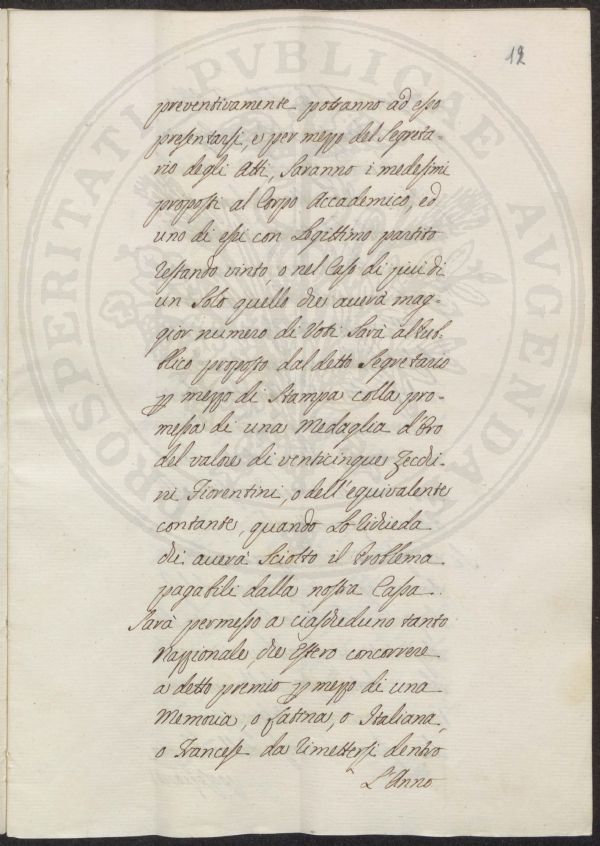 12
preventivamente potranno ad esso
presentarsi, e per mezzo del Segreta-
rio degli Atti, saranno i medesimi
proposti al Corpo Accademico, ed
uno di essi con Legittimo partito
restando vinto, o nel Caso di più di
un Solo quello che averà mag-
gior numero di Voti sarà al Pub-
blico proposto dal detto Segretario
p mezzo di Stampa colla pro-
messa di una Medaglia d'Oro
del valore di venticinque Zecchi-
ni Fiorentini, o dell'equivalente
contante, quando Lo richieda
chi averà Sciolto il Problema
pagabili dalla nostra Cassa.
Sarà permesso a ciascheduno tanto
Nazzionale, che Estero concorrere
a detto premio p mezzo di una
Memoria, o Latina, o Italiana,
o Francese da rimettersi dentro
L'Anno
PROSPERITATI PVBLICAE AVGENDAE